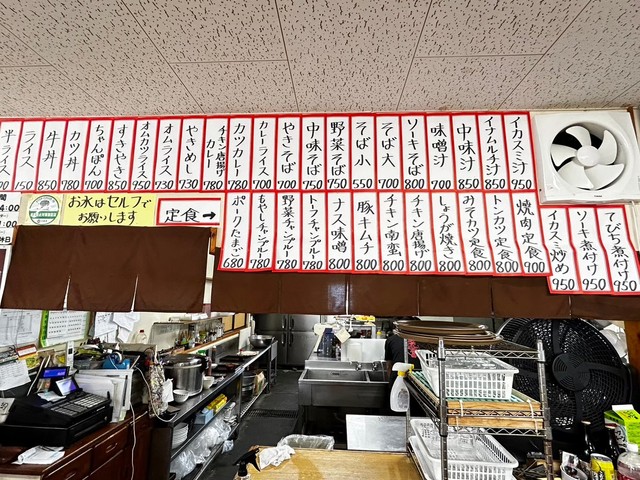 イカスミ汁 950
イナムルチ汁 850
中味汁 850
味噌汁 700
ソーキそば 800
そば大 700
そば小 550
野菜そば 750
中味そば 750
やきそば 700
カレーライス 700
カツカレー 780
チキン唐揚げカレー 780
やきめし 730
オムライス 730
オムカツライス 950
すきやき 850
ちゃんぽん 700
カツ丼 780
牛丼 850
ライス 150
半ライス
お氷はセルフで
お願いします
定食→
てびち煮付け 950
ソーキ煮付け 950
イカスミ炒め 950
焼肉定食 900
トンカツ定食 800
みそカツ定食 800
しょうが焼き 800
チキン唐揚げ 800
チキン南蛮 800
豚キムチ 800
ナス味噌 800
トーフチャンプルー 780
野菜チャンプルー 780
もやしチャンプルー 780
ポークたまご 680